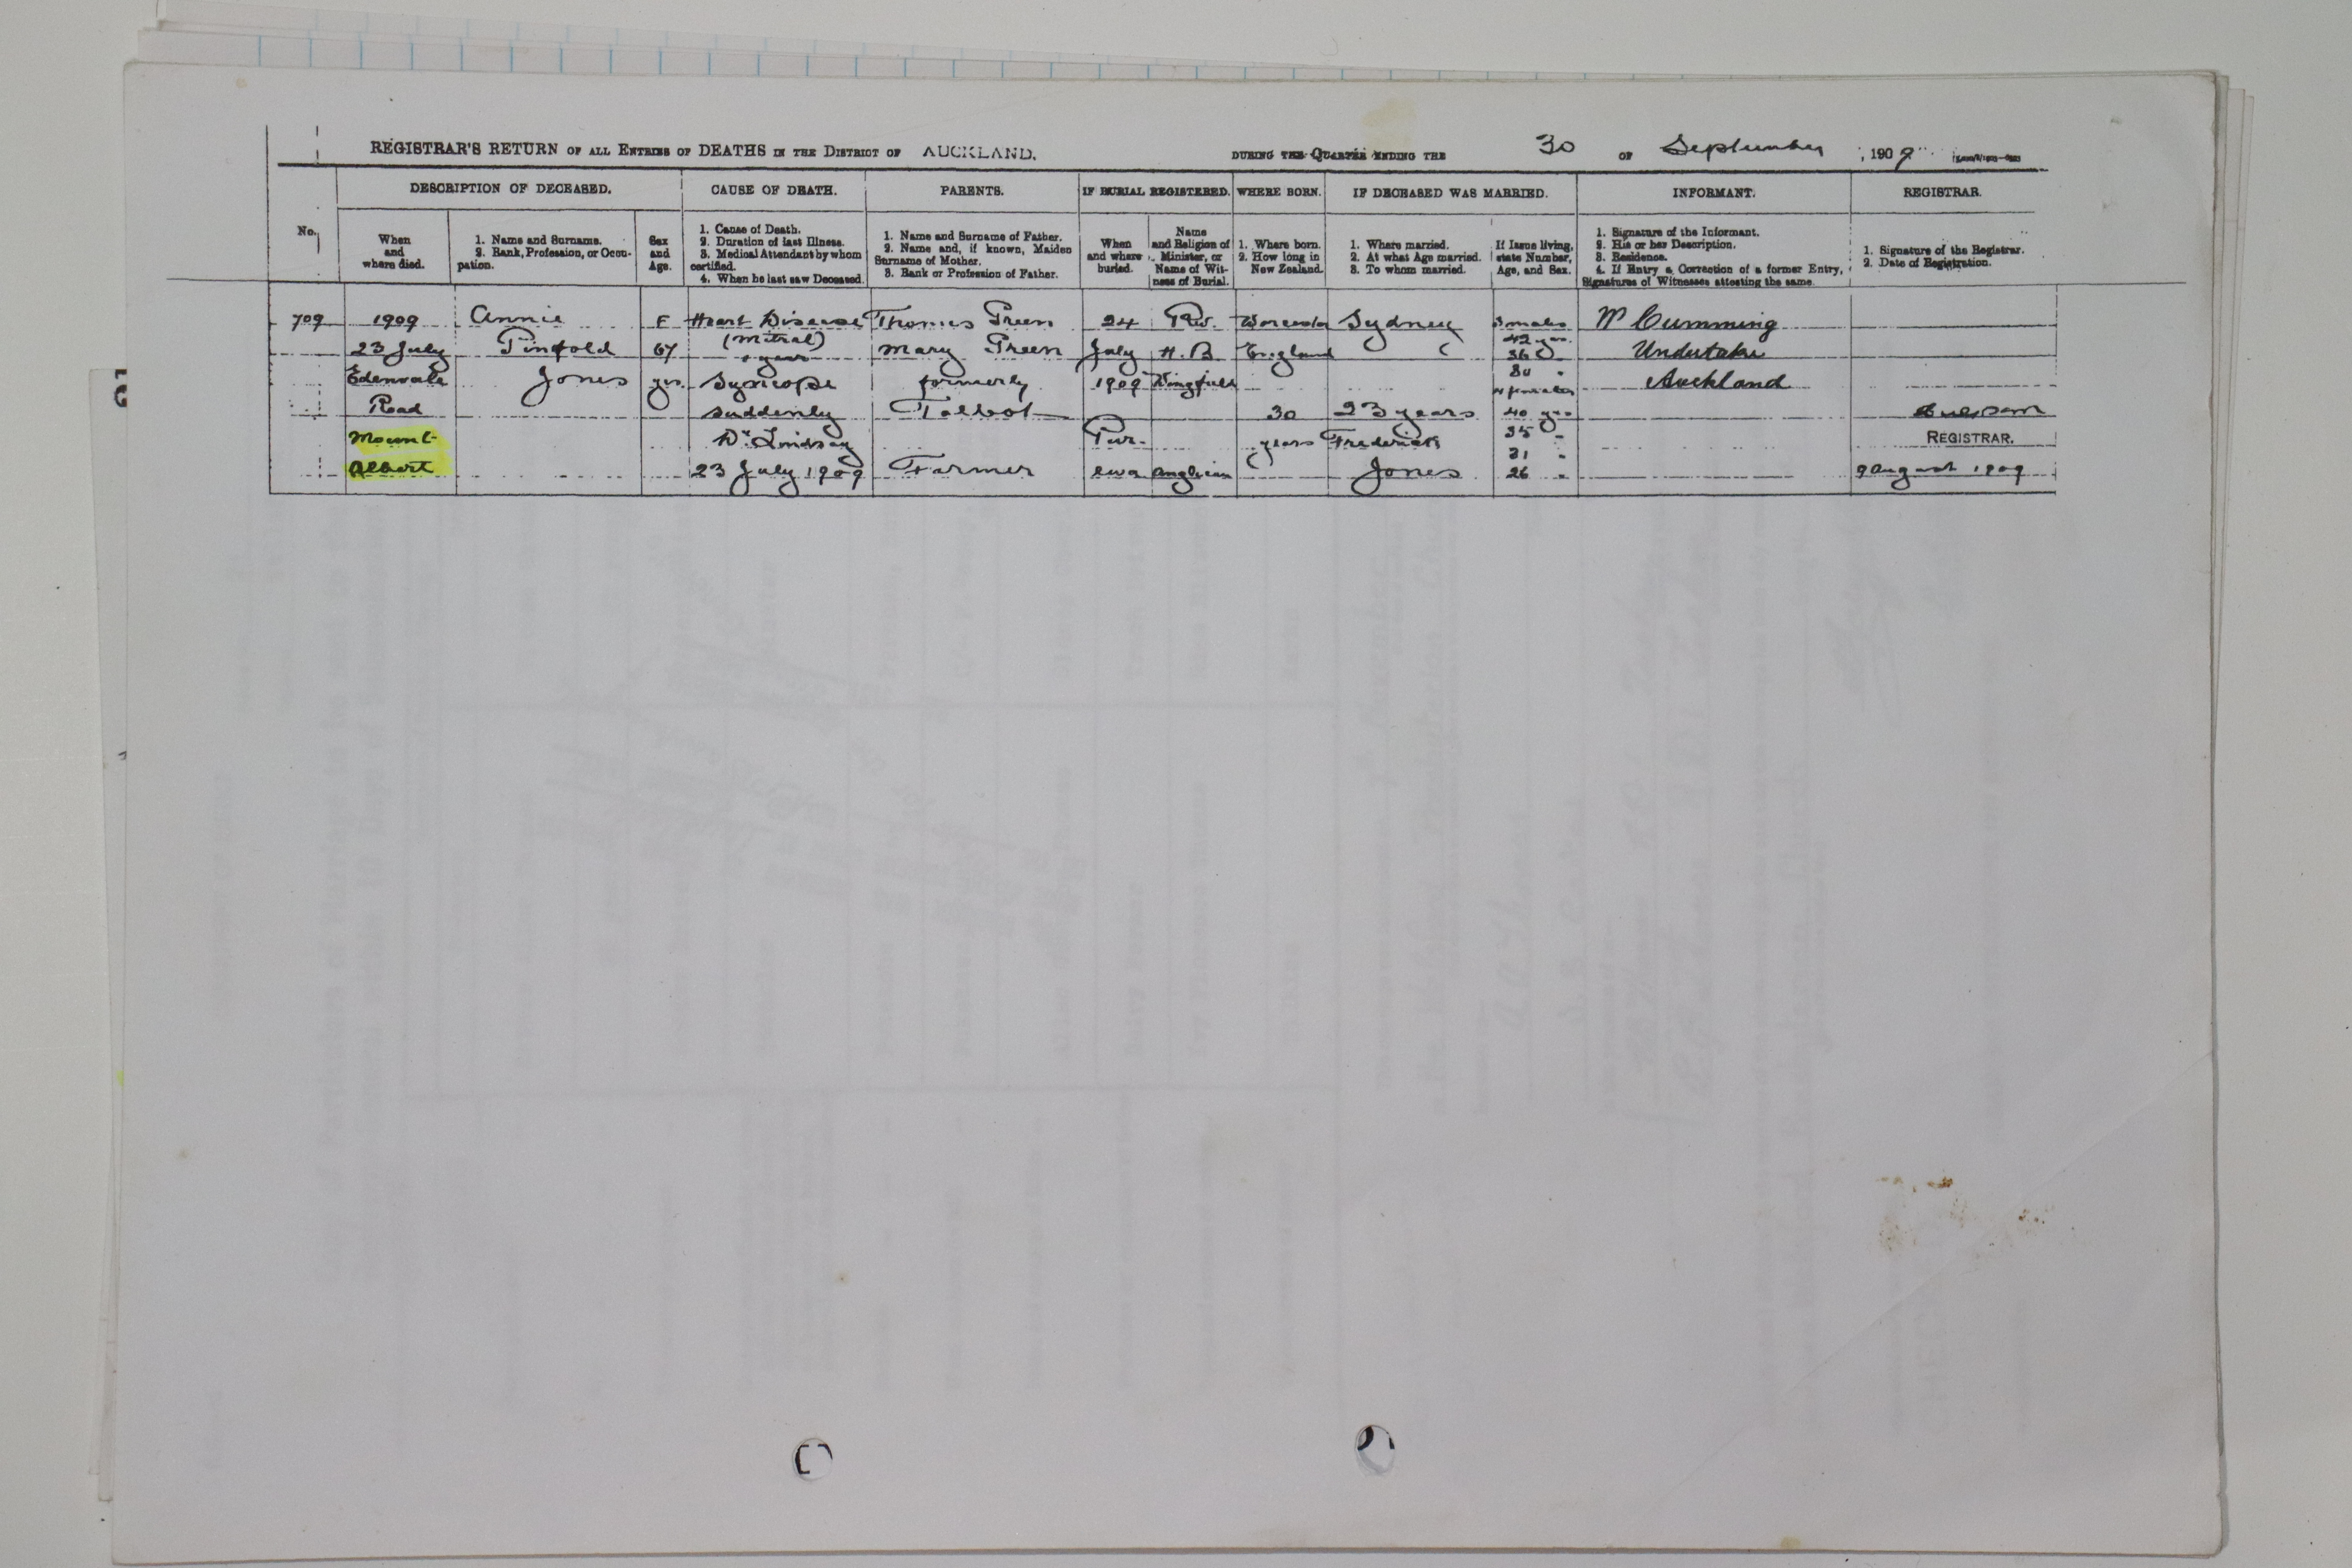 REGISTRAR'S RETURN OF ALL ENTRIES OF DEATHS IN THE DISTRICT OF AUCKLAND. DURING THE QUARTER ENDING THE 30 OF September, 1909
No.
DESCRIPTION OF DECEASED.
When
and
where died.
1. Name and Surname.
2. Rank, Profession, or Occu-
pation.
Sex
and
Age.
CAUSE OF DEATH.
1. Cause of Death.
2. Duration of last Illness.
3. Medical Attendant by whom
certified.
4. When he last saw Deceased.
PARENTS.
1. Name and Surname of Father.
2. Name and, if known, Maiden
Surname of Mother.
3. Rank or Profession of Father.
IF BURIAL REGISTERED.
When
and where
buried.
Name
and Religion of
Minister, or
Name of Wit-
ness of Burial.
WHERE BORN.
1. Where born.
2. How long in
New Zealand.
IF DECEASED WAS MARRIED.
1. Where married.
2. At what Age married.
3. To whom married.
If Issue living,
state Number,
Age, and Sex.
INFORMANT.
1. Signature of the Informant.
2. His or her Description.
3. Residence.
4. If Entry a Correction of a former Entry,
Signatures of Witnesses attesting the same.
REGISTRAR.
1. Signature of the Registrar.
2. Date of Registration.
709
1909
23 July
Edenvale
Road
Mount
Albert
Annie
Pinfold
Jones
F
67
yrs.
Heart Disease
(Mitral)
years
Syncope
suddenly
Dr. Lindsay
23 July 1909
Thomas Green
Mary Green
formerly
Talbot
Farmer
24
July
1909
Pur-
ewa
Rev.
H. B.
Wingfield
Anglican
Worcester
England
30
years
Sydney
23 years
Frederick
Jones
3 males
42 yrs.
36 "
30 "
4 females
40 yrs
35 "
31 "
26 "
W Cumming
Undertaker
Auckland
REGISTRAR.
9 August 1909